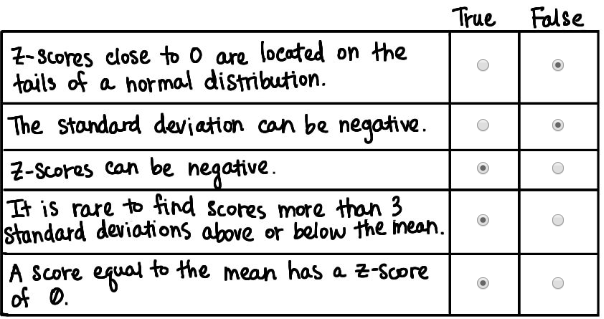 True False
Z-scores close to 0 are located on the
tails of a normal distribution.
The standard deviation can be negative.
Z-scores can be negative.
It is rare to find scores more than 3
standard deviations above or below the mean.
A score equal to the mean has a z-score
of 0.